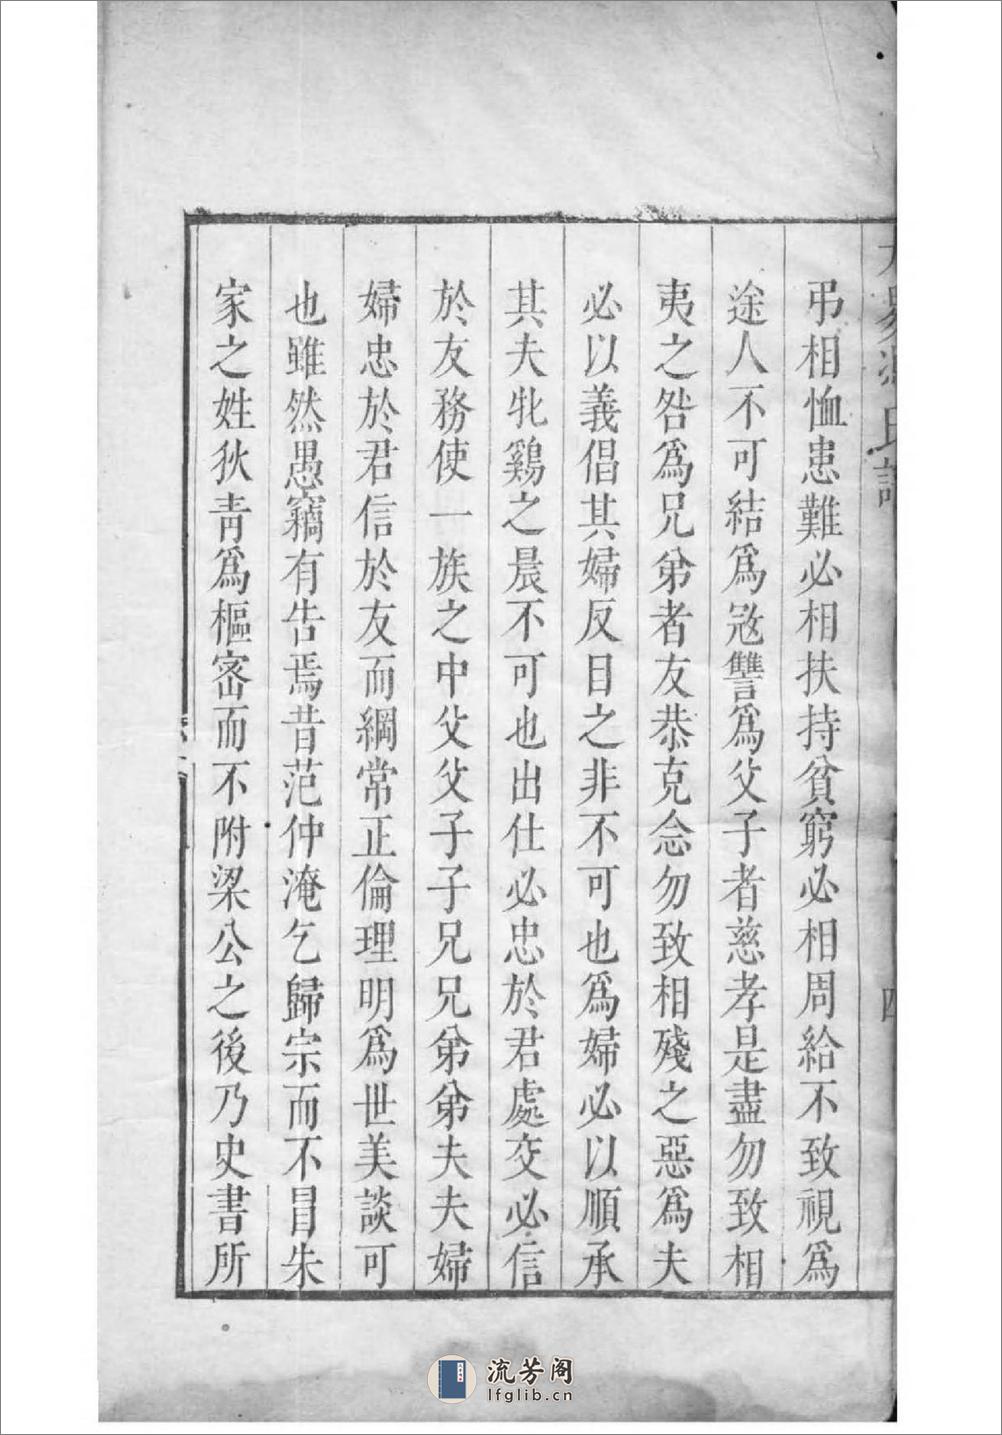 弔相恤患難必相扶持貧窮必相周給不致視爲
途人不可結爲寇讐爲父子者慈孝是盡勿致相
夷之咎爲兄弟者友恭克念勿致相殘之惡爲夫
必以義倡其婦反目之非不可也爲婦必以順承
其夫牝鷄之晨不可也出仕必忠於君處交必信
於友務使一族之中父父子子兄兄弟弟夫夫婦
婦忠於君信於友而綱常正倫理明爲世美談可
也雖然愚竊有告焉昔范仲淹乞歸宗而不冒朱
家之姓狄青爲樞密而不附梁公之後乃史書所
流芳阁
lfglib.cn